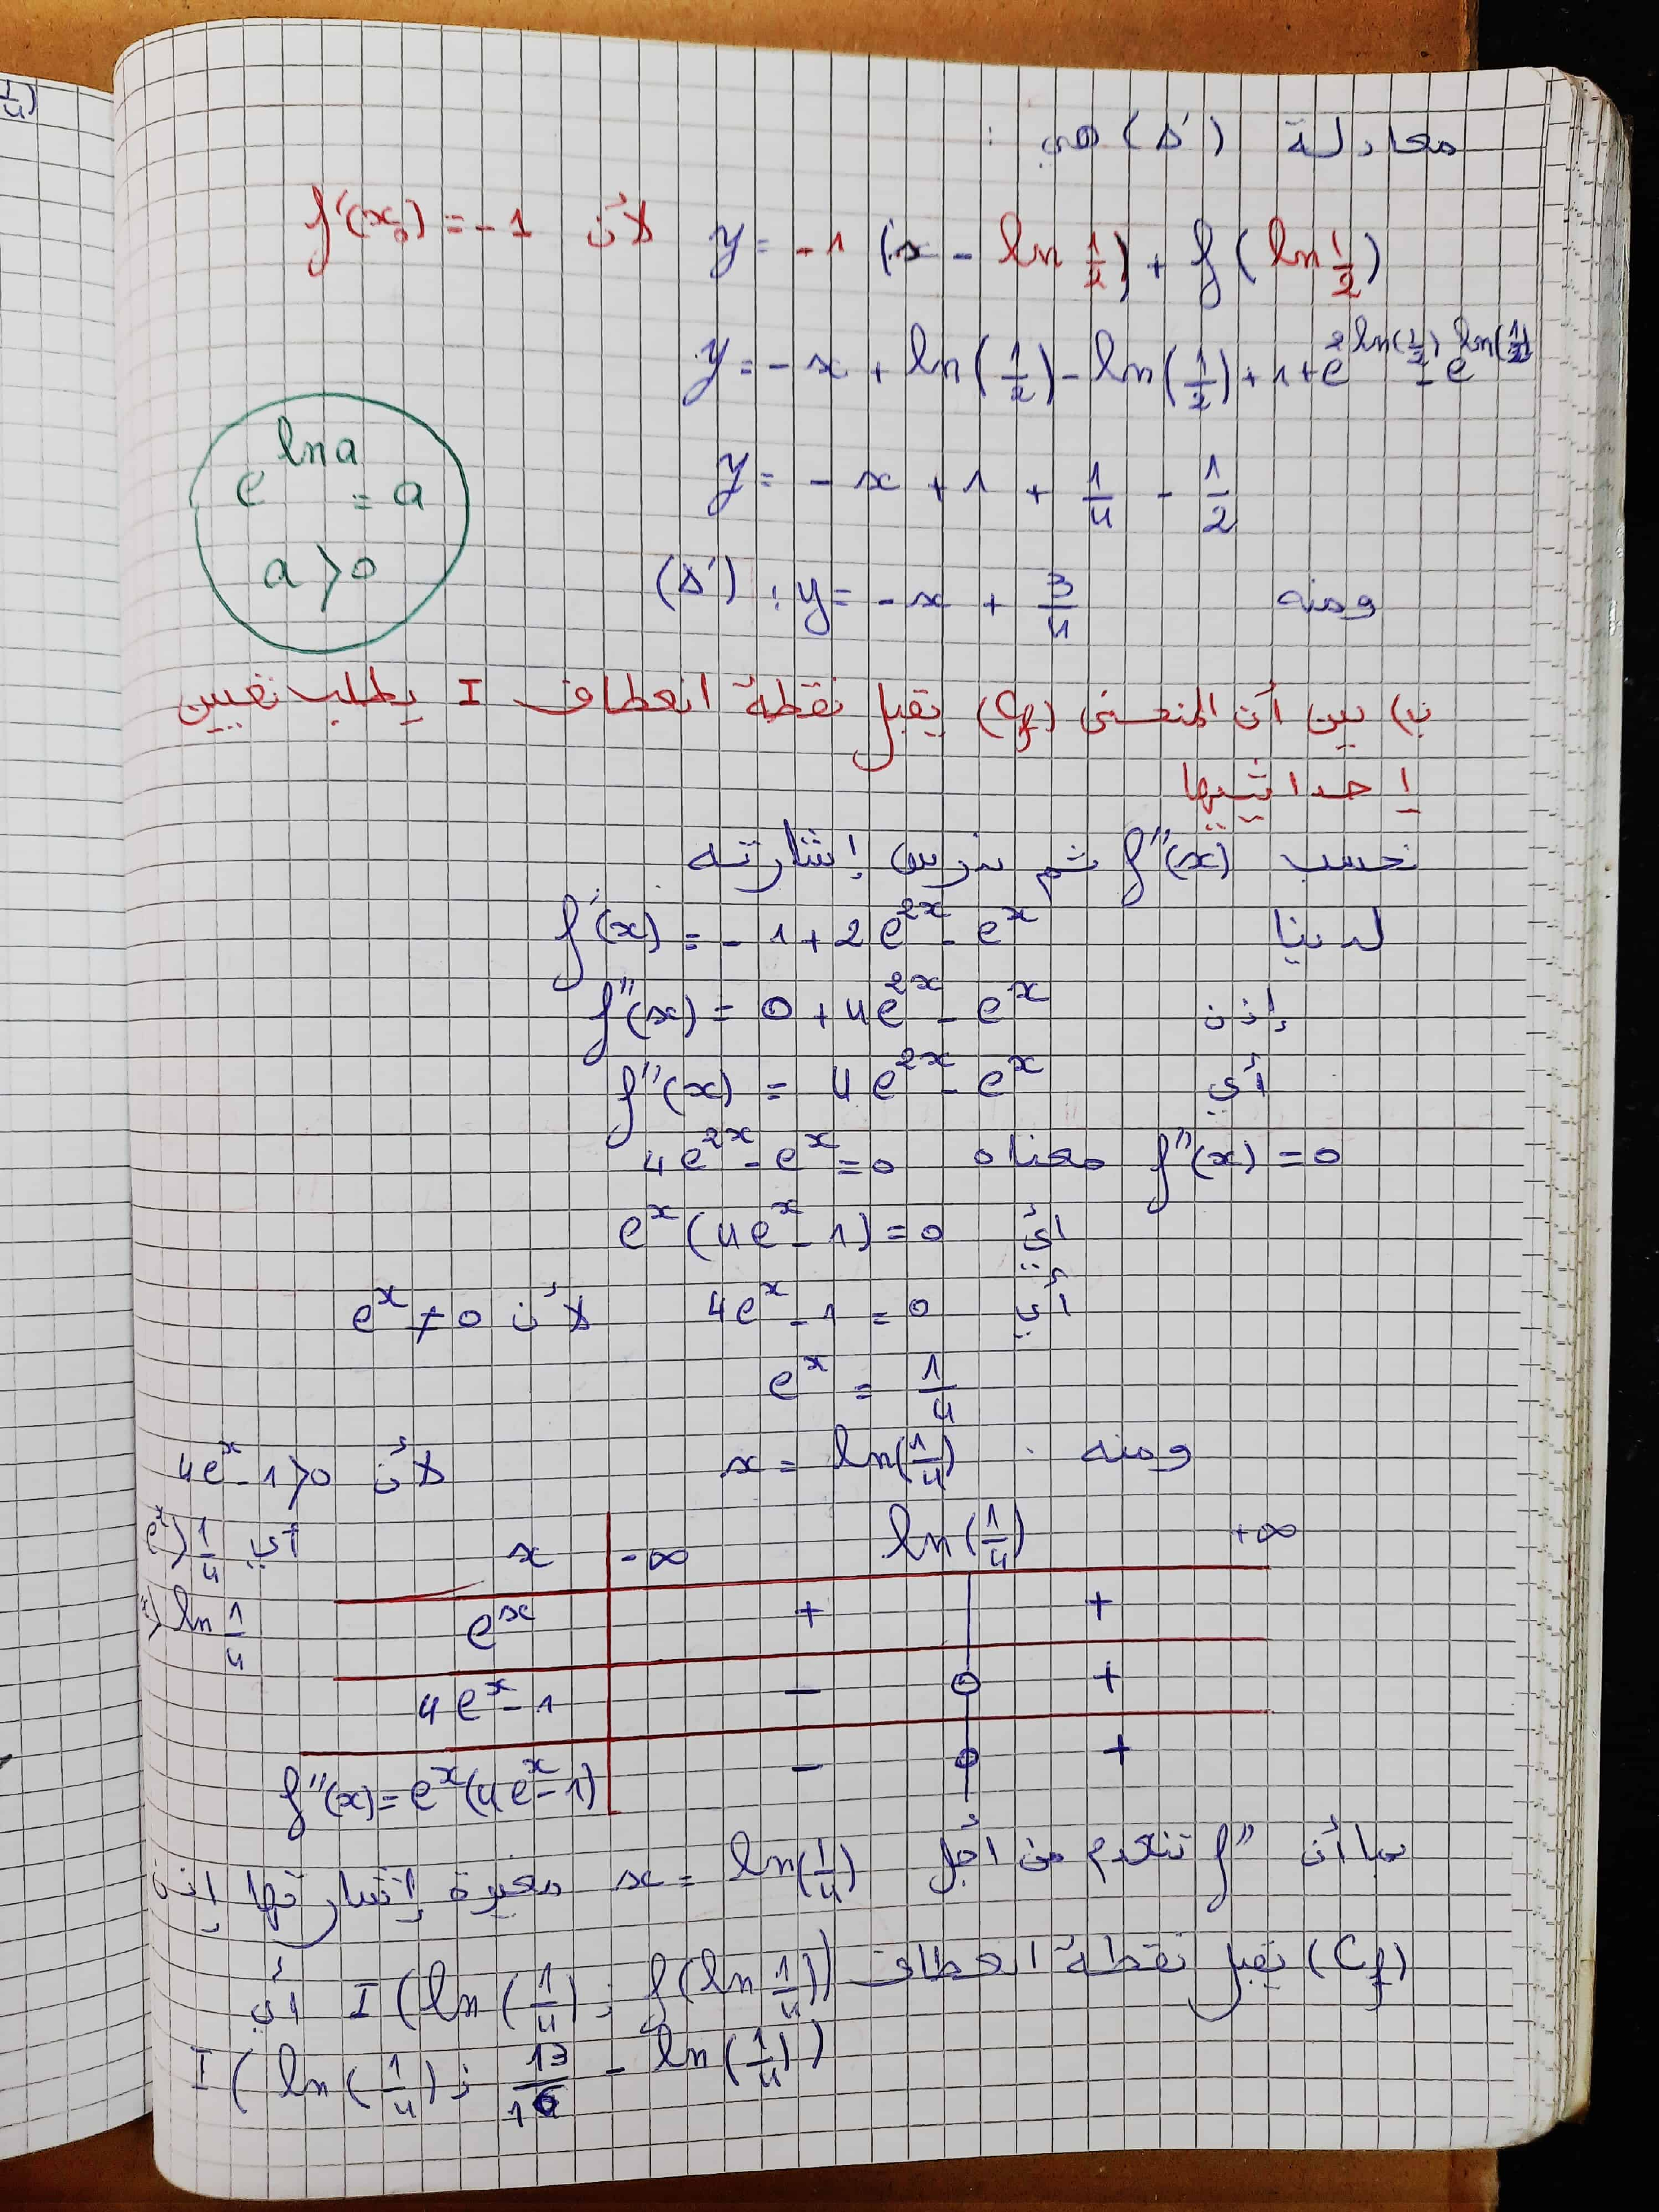 معادلة (Δ') هي :
y = -1 (x - ln 1/2) + f(ln 1/2) لأن f'(x₀) = -1
y = -x + ln(1/2) - ln(1/2) + 1 + e^{2ln(1/2)} - e^{ln(1/2)}
y = -x + 1 + 1/4 - 1/2
ومنه (Δ') : y = -x + 3/4
e^{ln a} = a
a > 0
ب) بين أن المنحنى (Cf) يقبل نقطة انعطاف I يطلب تعيين
إحداثييها
نحسب f''(x) ثم ندرس إشارته
لدينا f'(x) = -1 + 2e^{2x} - e^x
إذن f''(x) = 0 + 4e^{2x} - e^x
أي f''(x) = 4e^{2x} - e^x
f''(x) = 0 معناه 4e^{2x} - e^x = 0
أي e^x (4e^x - 1) = 0
أي 4e^x - 1 = 0 لأن e^x ≠ 0
e^x = 1/4
ومنه x = ln(1/4) لأن 4e^x - 1 > 0
أي e^x > 1/4
> ln 1/4
x -∞ ln(1/4) +∞
e^x + +
4e^x - 1 - 0 +
f''(x) = e^x(4e^x - 1) - 0 +
بما أن f'' تنعدم من أجل x = ln(1/4) مغيرة إشارتها إذن
(Cf) يقبل نقطة انعطاف I (ln(1/4) ; f(ln 1/4)) أي
I (ln(1/4) ; 13/16 - ln(1/4))